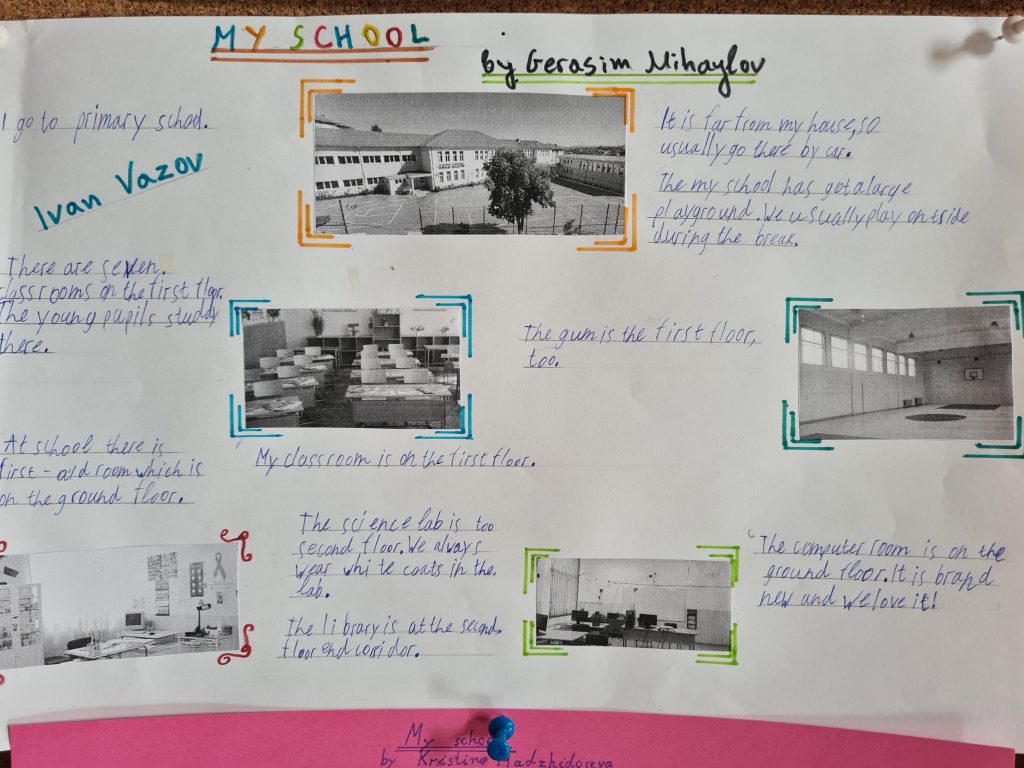 MY SCHOOL
by Gerasim Mihaylov
I go to primary school.
Ivan Vazov
It is far from my house, so
usually go there by car.
The my school has got a large
playground. We usually play outside
during the break.
There are seven.
classrooms on the first floor.
The young pupils study
there.
The gum is the first floor,
too.
My classroom is on the first floor.
At school there is
first-aid room which is
on the ground floor.
The science lab is too
second floor. We always
wear white coats in the.
lab.
The library is at the second.
floor end corridor.
The computer room is on the
ground floor. It is brand
new and we love it!
My school
by Kristina